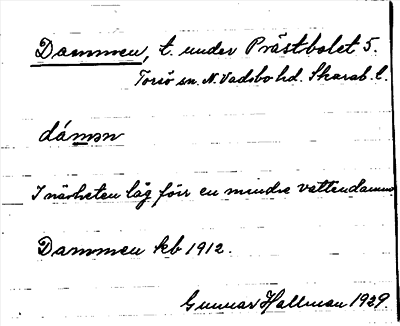 Dammen, t. under Prästbolet 5.
Torsö sn. N. Vadsbo hd. Skarab. l.
dámən
I närheten låg förr en mindre vattendamm.
Dammen kb 1912.
Gunnar Hallman 1929